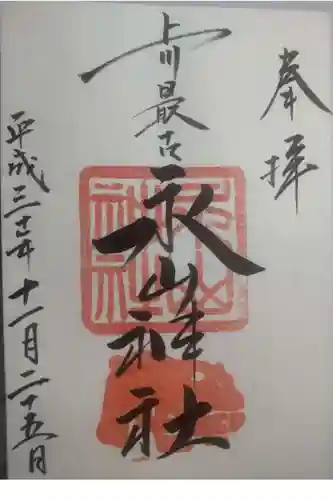 奉拝
上川最古
永山神社
平成三十年十一月二十五日